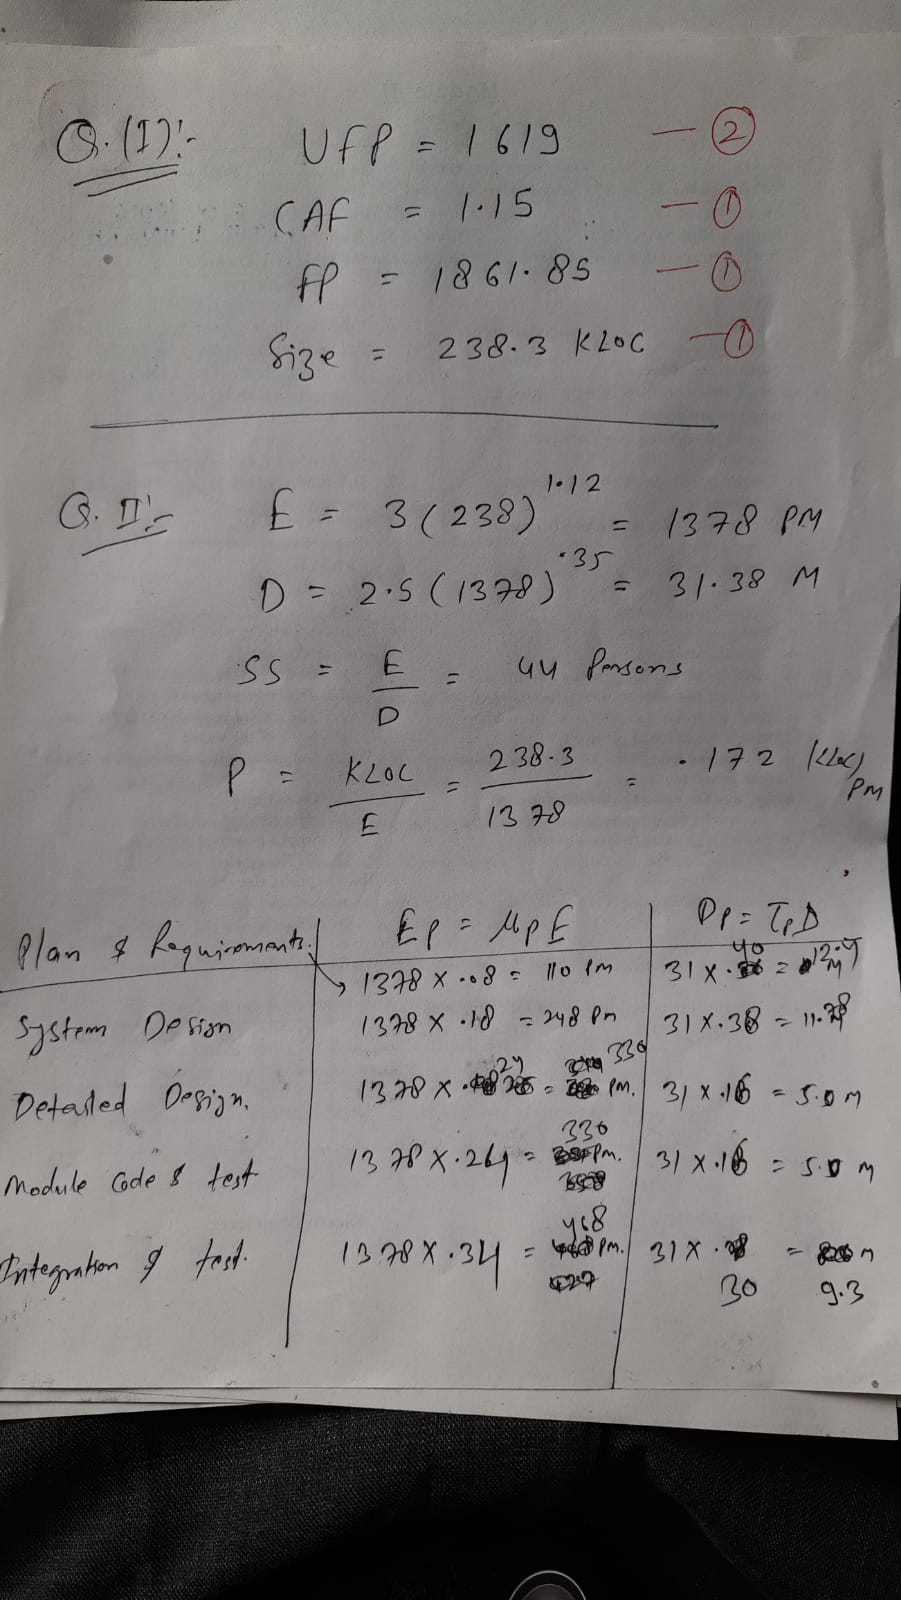 Q.(I):-
UFP = 1619 — ②
CAF = 1.15 — ①
FP = 1861.85 — ①
Size = 238.3 KLOC — ①
Q. II:-
E = 3(238)^1.12 = 1378 PM
D = 2.5(1378)^.35 = 31.38 M
SS = E/D = 44 Persons
P = KLOC/E = 238.3/1378 = .172 KLOC/PM
Plan & Requirements. Ep = μpE Dp = TpD
1378 X .08 = 110 PM 31 X .40 = 12.4 M
System Design 1378 X .18 = 248 Pm 31 X .38 = 11.78
Detailed Design. 1378 X .24 = 330 PM. 31 X .16 = 5.0 M
Module Code & test 1378 X .24 = 330 PM. 31 X .16 = 5.0 M
Integration & test. 1378 X .34 = 468 PM. 31 X .30 = 9.3 M